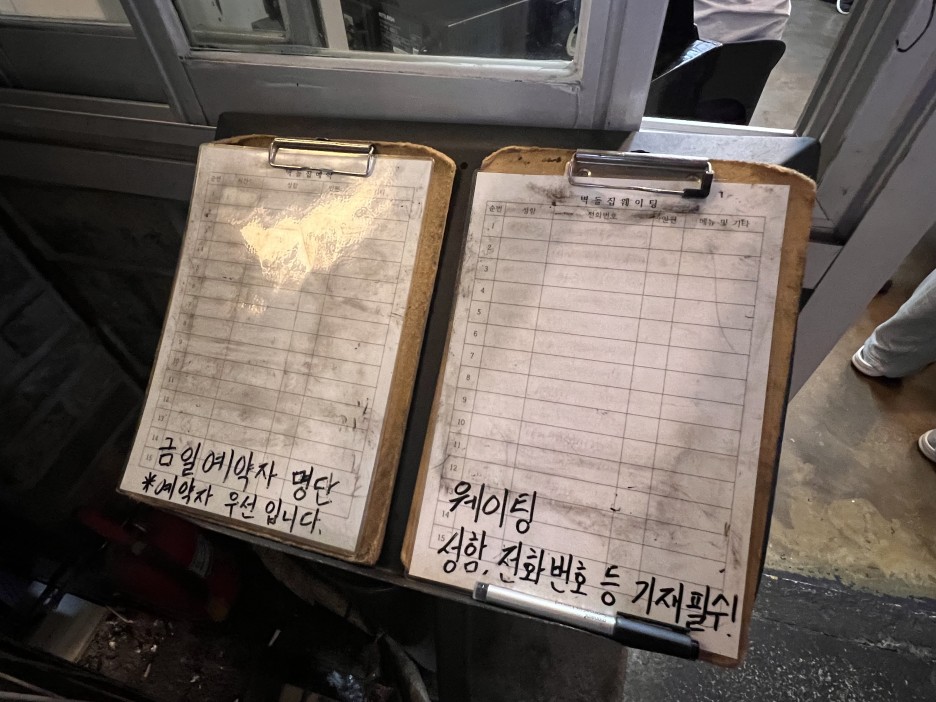 벽돌집예약
순번
성함
금일예약자 명단
*예약자 우선 입니다.
벽돌집웨이팅
순번 성함 전화번호 인원 메뉴 및 기타
1
2
3
4
5
6
7
8
9
10
11
12
14
15
웨이팅
성함, 전화번호 등 기재필수!